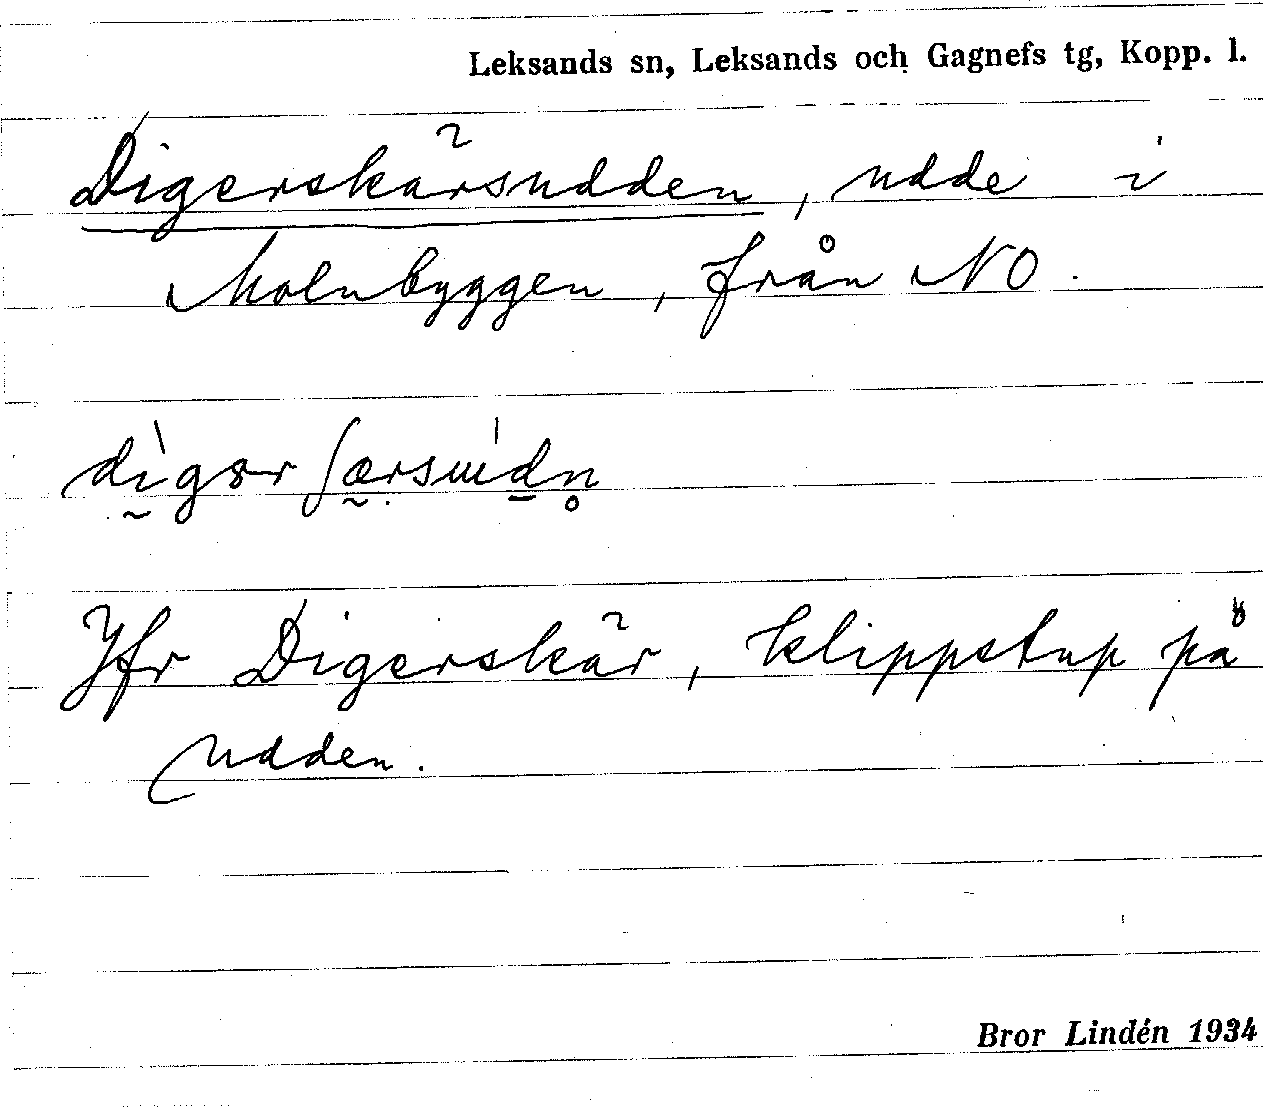 Leksands sn, Leksands och Gagnefs tg, Kopp. l.
Digerskärsudden, udde i
Molnbyggen, från NO.
Jfr Digerskär, klippstup på
udden.
Bror Lindén 1934